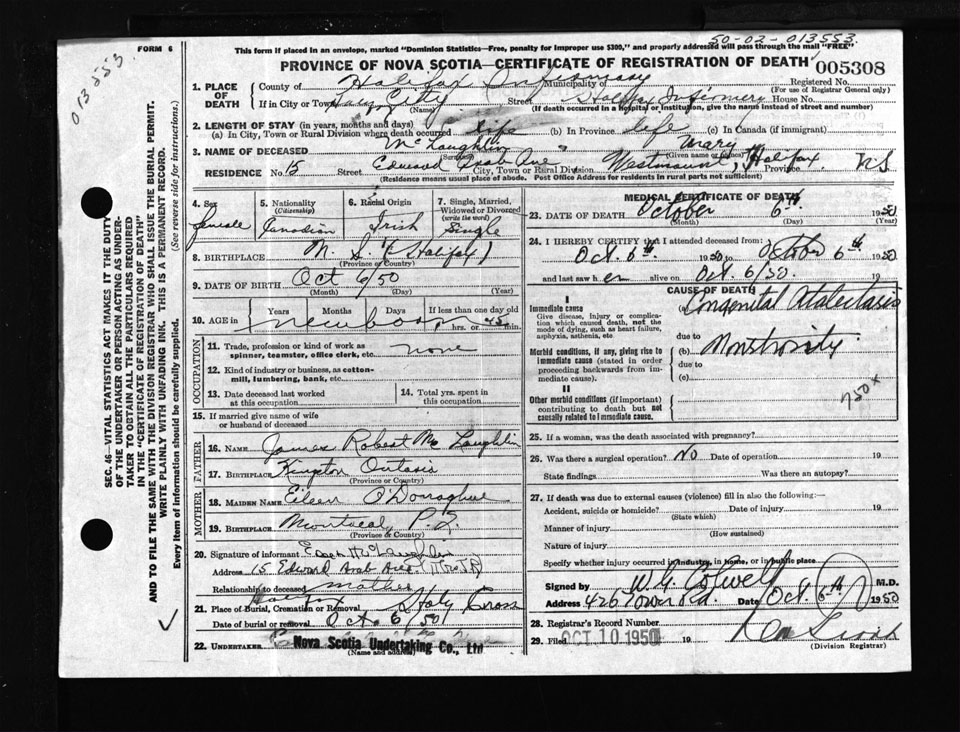 50-02-013553
013553
FORM 6
This form if placed in an envelope, marked "Dominion Statistics—Free, penalty for improper use $300," and properly addressed will pass through the mail "FREE"
PROVINCE OF NOVA SCOTIA—CERTIFICATE OF REGISTRATION OF DEATH
005308
1. PLACE OF DEATH
County of Halifax Infirmary Municipality of
Registered No.
(For use of Registrar General only)
If in City or Town City Street Halifax Infirmary House No.
(Name) (If death occurred in a Hospital or Institution, give the name instead of street and number)
2. LENGTH OF STAY (in years, months and days)
(a) In City, Town or Rural Division where death occurred life (b) In Province life (c) In Canada (if immigrant)
3. NAME OF DECEASED McLaughlin Mary
(Surname) (Given name or names)
RESIDENCE No. 15 Street Edward Arab Ave City, Town or Rural Division Westmount, Halifax Province NS
(Residence means usual place of abode. Post Office Address for residents in rural parts not sufficient)
4. Sex Female
5. Nationality (Citizenship) Canadian
6. Racial Origin Irish
7. Single, Married, Widowed or Divorced (write the word) Single
8. BIRTHPLACE N.S. (Halifax)
(Province or Country)
9. DATE OF BIRTH Oct 6/50
(Month) (Day) (Year)
10. AGE in Years Months Days If less than one day old
newborn hrs. or 45 min.
OCCUPATION
11. Trade, profession or kind of work as spinner, teamster, office clerk, etc. none
12. Kind of industry or business, as cotton-mill, lumbering, bank, etc.
13. Date deceased last worked at this occupation
14. Total yrs. spent in this occupation
15. If married give name of wife or husband of deceased
FATHER
16. NAME James Robert McLaughlin
17. BIRTHPLACE Kingston Ontario
(Province or Country)
MOTHER
18. MAIDEN NAME Eileen O'Donaghue
19. BIRTHPLACE Montreal, P.Q.
(Province or Country)
20. Signature of informant McLaughlin
Address 15 Edward Arab Ave.
Relationship to deceased mother
21. Place of Burial, Cremation or Removal Halifax Holy Cross
Date of burial or removal Oct 6/50
22. UNDERTAKER Nova Scotia Undertaking Co., Ltd
(Name and address)
MEDICAL CERTIFICATE OF DEATH
23. DATE OF DEATH October 6th 1950
(Month) (Day) (Year)
24. I HEREBY CERTIFY that I attended deceased from:
Oct. 6th 1950 to October 6th 1950
and last saw her alive on Oct. 6/50. 19
CAUSE OF DEATH
I
Immediate cause
Give disease, injury or complication which caused death, not the mode of dying, such as heart failure, asphyxia, asthenia, etc
(a) Congenital Atelectasis
due to
Morbid conditions, if any, giving rise to immediate cause (stated in order proceeding backwards from immediate cause).
(b) Monstrosity
due to
(c)
II
Other morbid conditions (if important) contributing to death but not causally related to immediate cause.
750x
25. If a woman, was the death associated with pregnancy?
26. Was there a surgical operation? No Date of operation 19
State findings Was there an autopsy?
27. If death was due to external causes (violence) fill in also the following:—
Accident, suicide or homicide? Date of injury 19
(State which)
Manner of injury
(How sustained)
Nature of injury
Specify whether injury occurred in industry, in home, or in public place
Signed by W.G. Colwell M.D.
Address 426 Tower Rd. Date Oct. 6th 1950
28. Registrar's Record Number
29. Filed OCT 10 1950 19
(Division Registrar)
SEC. 46—VITAL STATISTICS ACT MAKES IT THE DUTY
OF THE UNDERTAKER OR PERSON ACTING AS UNDER-
TAKER TO OBTAIN ALL THE PARTICULARS REQUIRED
IN THE "CERTIFICATE OF REGISTRATION OF DEATH"
AND TO FILE THE SAME WITH THE DIVISION REGISTRAR WHO SHALL ISSUE THE BURIAL PERMIT.
WRITE PLAINLY WITH UNFADING INK. THIS IS A PERMANENT RECORD.
Every item of information should be carefully supplied. (See reverse side for instructions.)